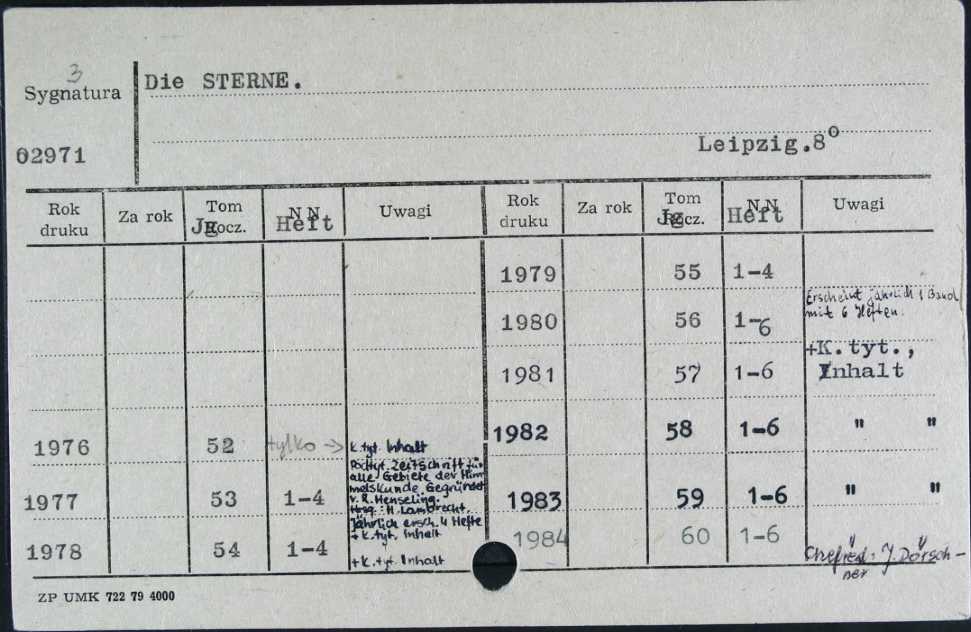 3
Sygnatura
Die STERNE.
02971
Leipzig.8°
Rok druku Za rok Tom Jg Rocz. NN Heft Uwagi Rok druku Za rok Tom Jg Rocz. NN Heft Uwagi
1979 55 1-4
Erscheint jährlich 1 Band
mit 6 Heften.
1980 56 1-6
+K.tyt.,
1981 57 1-6 Inhalt
1976 52 tylko → k.tyt. Inhalt
1982 58 1-6 " "
Podtyt. Zeitschrift für
alle Gebiete der Him
melskunde. Gegründet
v. R. Henseling.
Hrsg.: H. Lambrecht.
Jährlich ersch. 4 Hefte
+ k.tyt. Inhalt
1977 53 1-4
1983 59 1-6 " "
1978 54 1-4 +k.tyt. Inhalt
1984 60 1-6
Chefred.: J. Dörsch-
ner
ZP UMK 722 79 4000